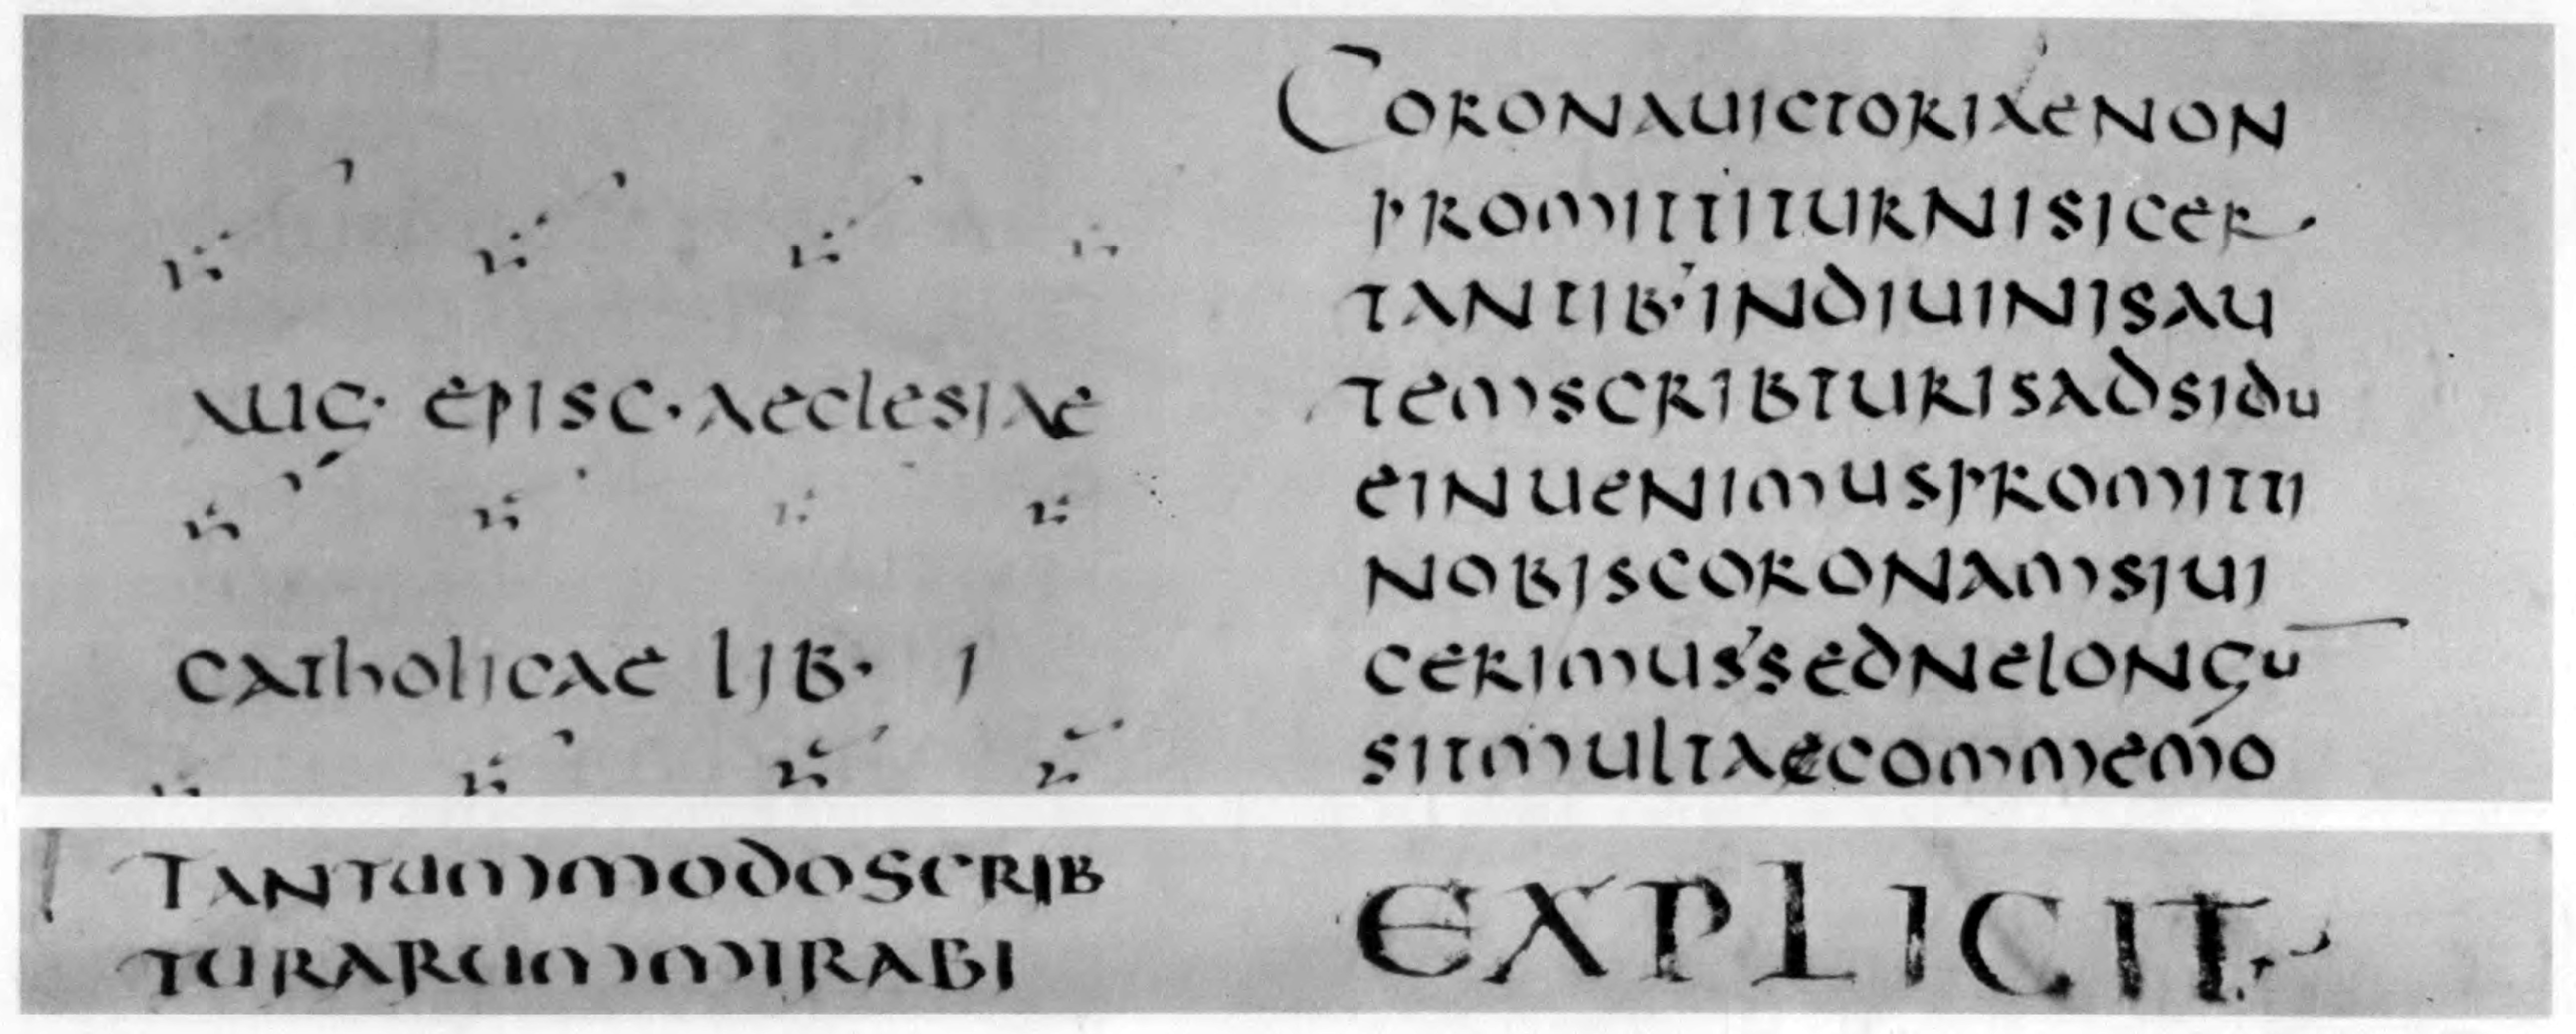 AUG· EPISC· AECLESIAE
CATHOLICAE LIB· I
CORONAUICTORIAENON
PROMITTITURNISICER
TANTIB·INDIUINISAU
TEMSCRIBTURISADSIDU
EINUENIMUSPROMITTI
NOBISCORONAMSIUI
CERIMUS'SEDNELONGU
SITMULTAECOMMEMO
TANTUMMODOSCRIB
TURARUMMIRABI
EXPLICIT